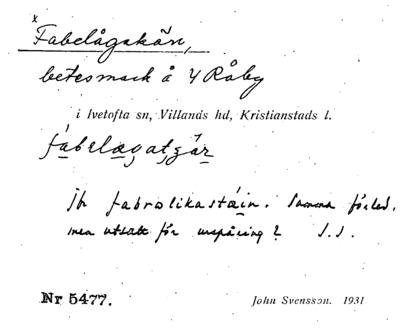 x
Fabelågskän,
betesmark å Y Råby
i Ivetofta sn, Villands hd, Kristianstads l.
Jfr fabrolikastäin. Samma förled,
men utsatt för omstöpning? S.S.
Nr 5477.
John Svensson. 1931